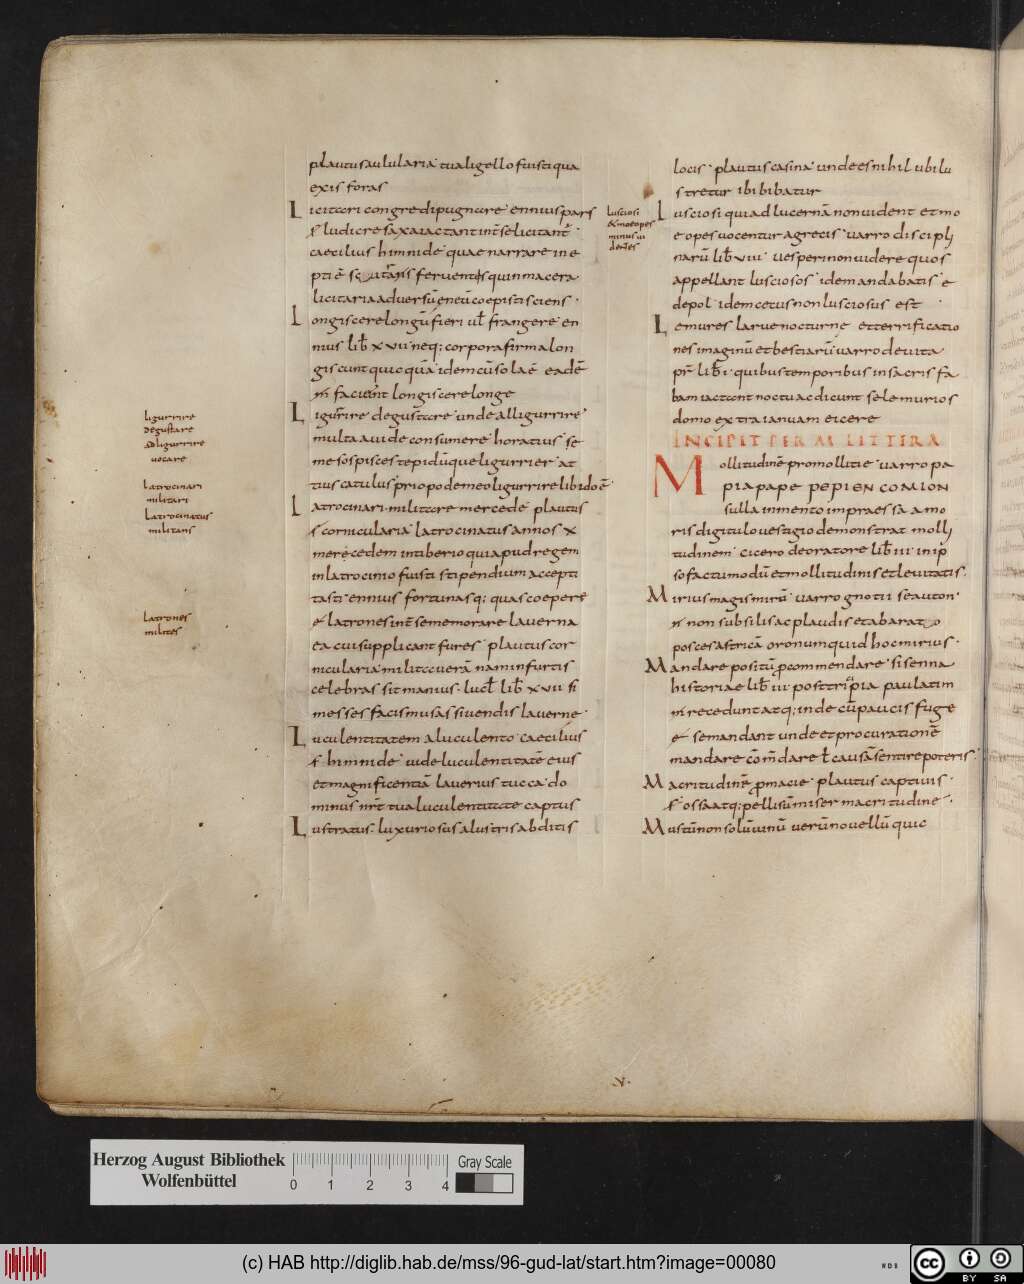 plautus aulularia tu a ligello fuisti qua
exis foras
Licitari congredi pugnare ennius pars
ludicre saxa iactant int se licitant
caecilius himnide quae narrare ine
ferventes quin macera
licitari adversū eneū coepisti sciens
Longiscere longū fieri ul frangere en
nius lib xvii neq: corpora firma lon
giscunt quicquā idem cū sola ē eadē
faciunt longiscere longe
Ligurrire degustare unde alligurrire
multa avide consumere horatius se
mesos pisces tepidūque ligurrier at
tius catulus pri opodemeo ligurrire libido ē
Latrocinari militare mercede plautus
cornicularia latrocinatus annos x
mercedem
in latrocinio fuisti stipendium accepti
tasti ennius fortunasq: quas coepere
latrones int se memorare laverna
ea cui supplicant fures plautus cor
nicularia mili tc uerā nam in furtis
celebras sit manius lucl lib xvii si
messes facis musas si vendis laverne
Luculentitatem a luculento caecilius
himnide vide luculentitatē eius
et magnificentiā laverius tucca do
minus nrt tua luculentitate captus
Lustratus luxuriosus a lustris abditis
ligurrire
degustare
adligurrire
vocare
latrocinari
militari
latrocinatus
militans
latrones
milites
locis plautus casina unde es nihil ubi lu
stretur ibi bibatur
Lusciosi qui ad lucernā non vident et mo
eopes vocentur a grecis varro discipli
narū lib viii vesperi non videre quos
appellant lusciosos idem andabatis e
depol idem cetus non lusciosus est
Lemures larve nocturne et terrificatio
nes imaginū et bestiarū varro de vita
pr lib i quibus temporibus in sacris fa
bam iactant noctu ac dicunt se lemurios
domo extra ianuam eicere
INCIPIT PER M LITTERA
Mollitudinē pro mollitie varro pa
PIA PAPE PEPI EN COMION
sulla in mento impraessa amo
ris digitulo vestigio demonstrat molli
tudinem cicero de oratore lib iii in ip
so factu modū et mollitudinis et levitatis
Mirius magis mirū varro gnoti seauton
non subsilis ac plaudis et ab arato
posces astricā oronum quid hoc mirius
Mandare positū p commendare sisenna
historiae lib iii paulatim
recedunt atq: inde cū paucis fuge
se mandant unde et procurationē
mandare cōmdare causā sentire poteris
Macritudinē p macie plautus captivis
ossa atq: pellis ū miser macritudine
Mustū non solū vinū verū novellū quic
lusciosi
& moeopes
minus vi
dentes
Herzog August Bibliothek
Wolfenbüttel
0 1 2 3 4
Gray Scale
(c) HAB http://diglib.hab.de/mss/96-gud-lat/start.htm?image=00080
WDB
CC BY SA